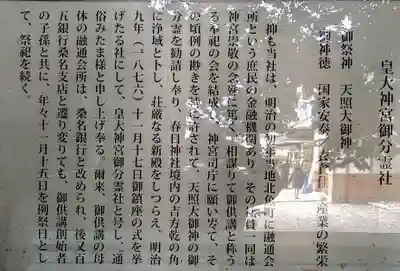 皇大神宮御分霊社
御祭神 天照大御神
御神徳 国家安泰 産業の繁栄
抑も当社は、明治の 年当地北魚町に融通会
所という庶民の金融機関あり、その役員一同は
神宮崇敬の念 に篤く、相謀りて御供講と称う
る奉祀の会を結成し、神宮司庁に願い 、そ
の頃例の尠きを特に許されて、天照大御神の御
分霊を勧請し奉り、春日神社境内の吉方乾の角
に浄域と卜し、荘厳なる新殿をしつらえ、明治
九年(一八七六)十一月十七日御鎮座の式を挙
げたる社にして、皇大神宮御分霊社と号し、通
俗みたま様と申し上げ奉る。爾来、御供講の母
体の融通会所は、桑名銀行と改められ、後又百
五銀行桑名支店と遷り変りても、御供講創始者
の子孫と共に、年々十一月十五日を例祭日とし
て、祭祀を続く。